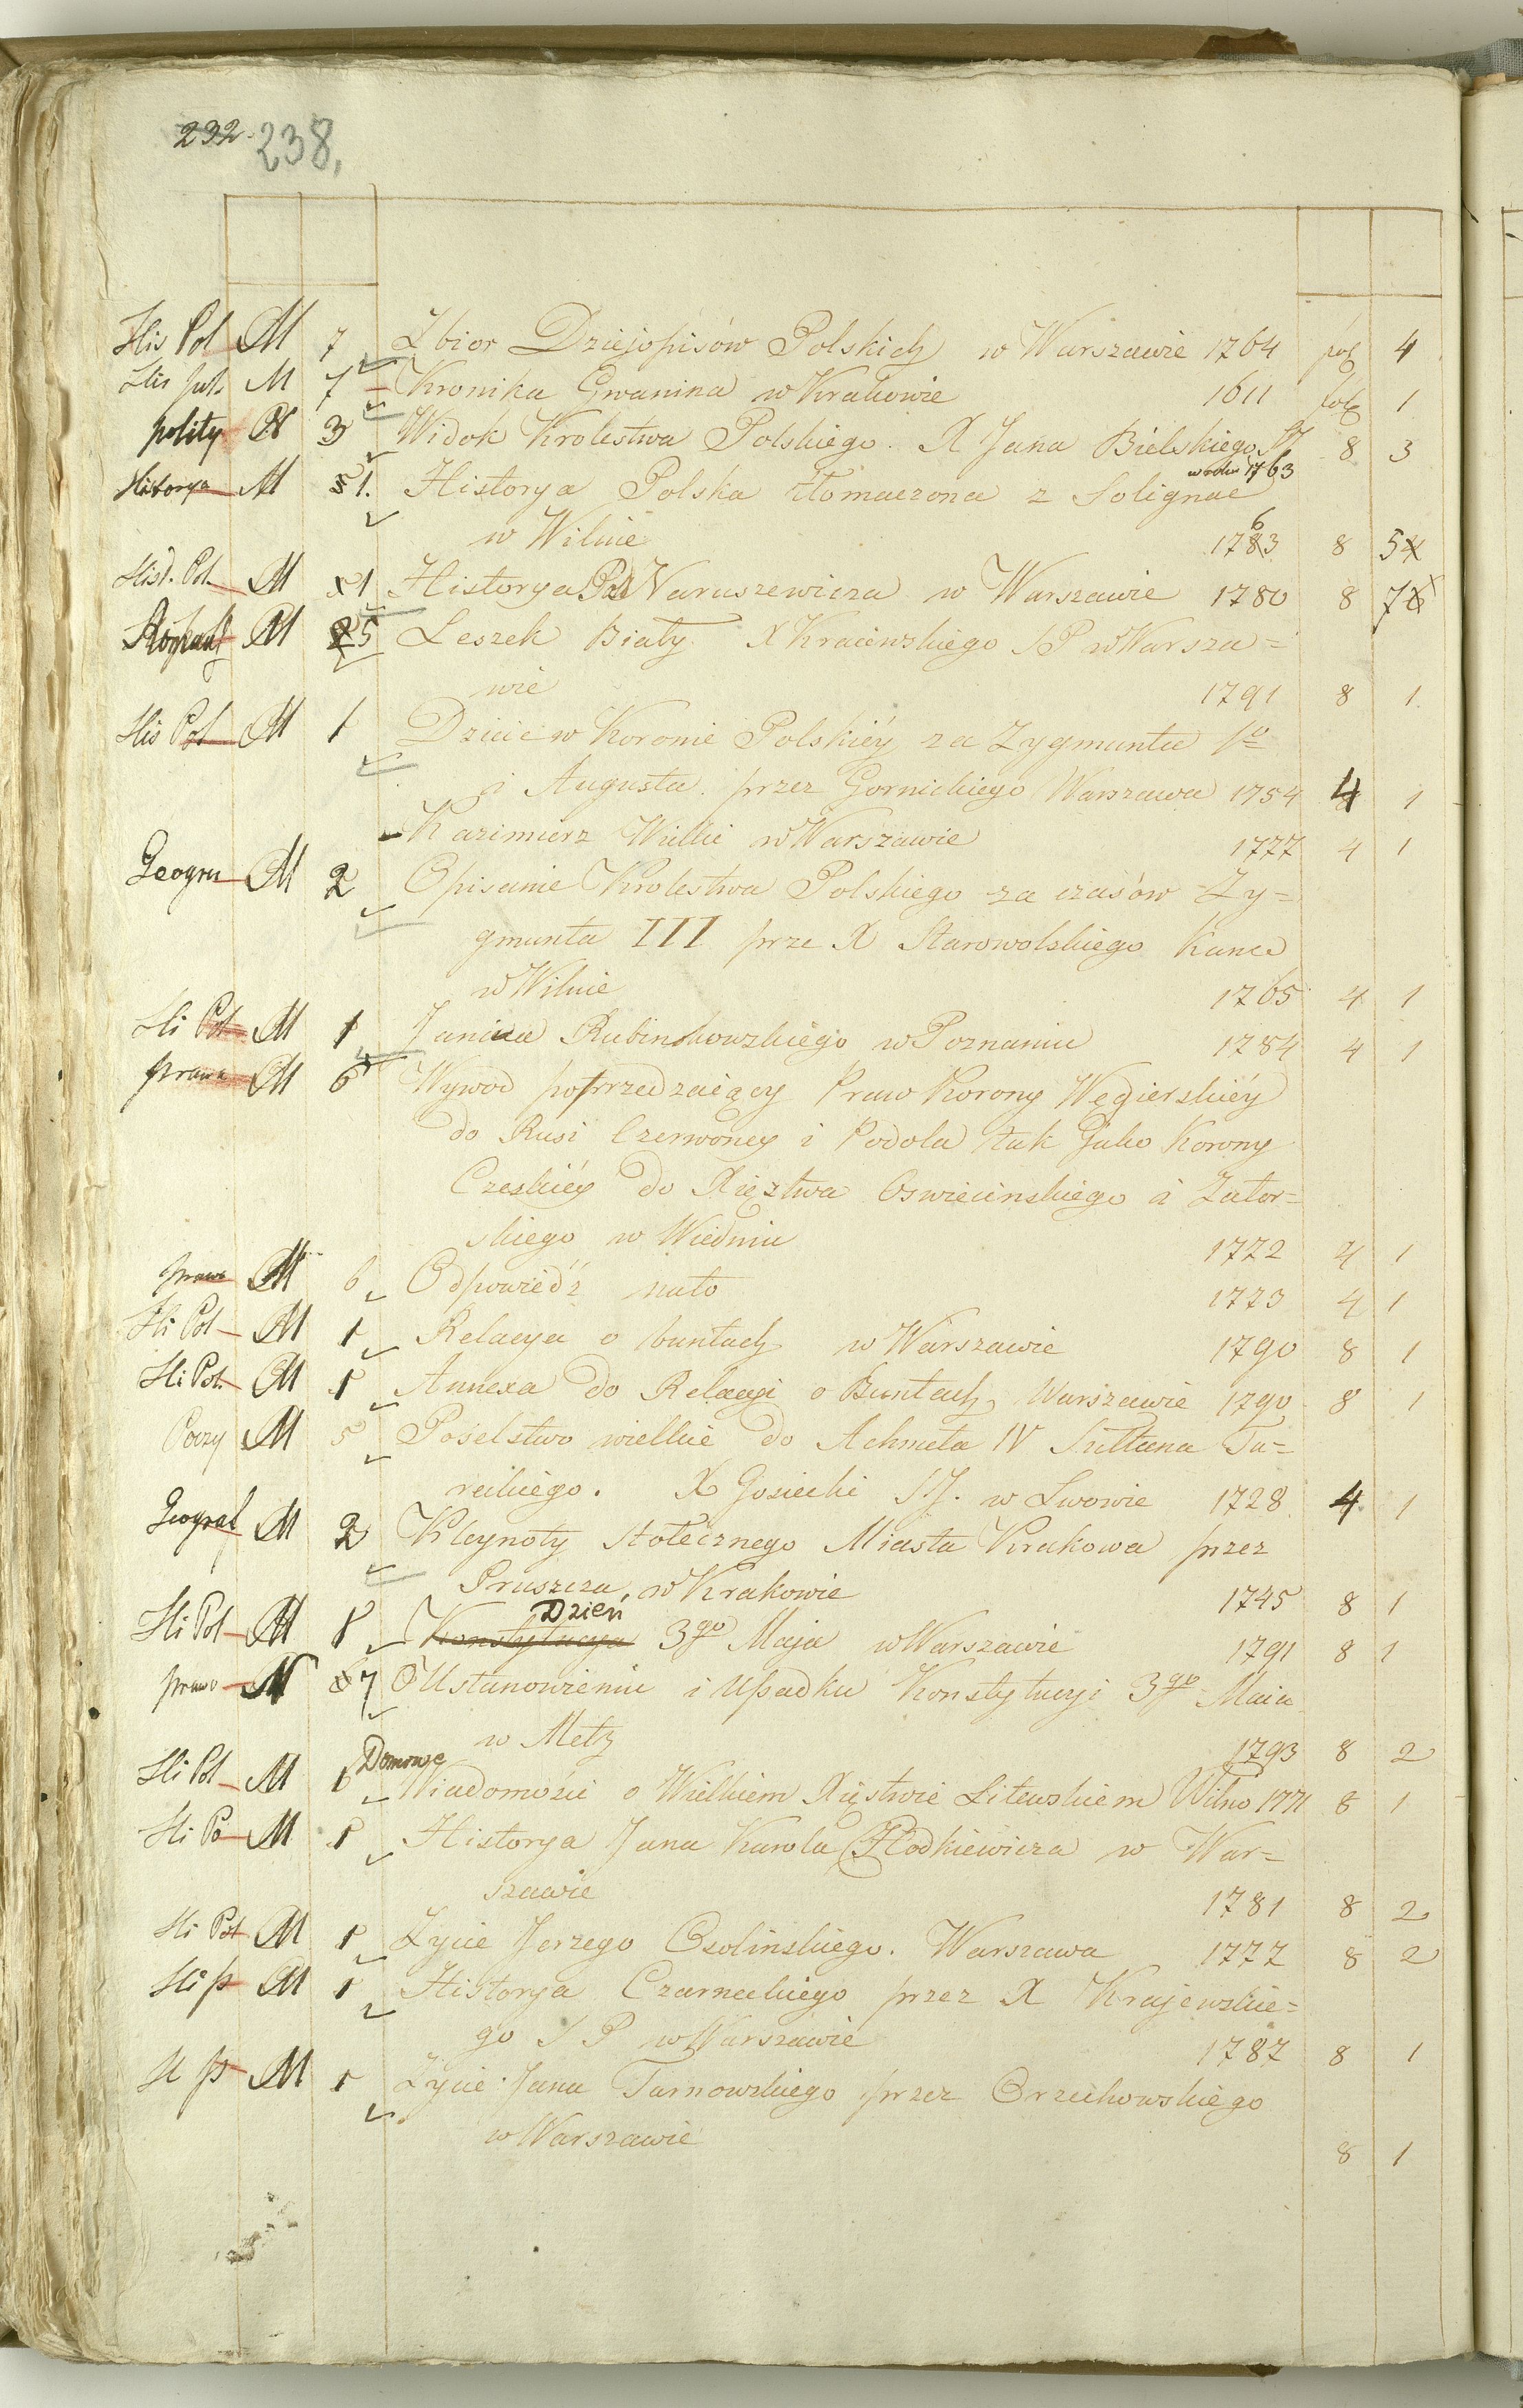 232. 238.
His Pol M 7 Zbior Dziejopisów Polskich w Warszawie 1764 fol 4
His pol. M 7 Kronika Gwanina w Krakowie 1611 fol 1
polity M 3 Widok Krolestwa Polskiego. X Jana Bielskiego SJ 8 3
w roku 1763
Historya M 1. Historya Polska tłomaczona z Solignac
w Wilnie 1763 8 5
Hist. Pol M 1 Historya Pol Naruszewicza w Warszawie 1780 8 7
M 5 Leszek Biały X Kraiewskiego SP w Warsza=
wie 1791 8 1.
His Pol M 1 Dzieie w Koronie Polskiéy za Zygmunta Igo
i Augusta. przez Gornickiego Warszawa 1754 4 1
Kazimierz Wielki w Warszawie 1777 4 1
Geogra M 2 Opisanie Krolestwa Polskiego za czasów Zy=
gmunta III prze X Starowolskiego Kanc
w Wilnie 1765 4 1
Hi Pol M 1 Janina Rubinkowskiego w Poznaniu 1784 4 1
prawa M 6 Wywod poprzedzaiący Praw Korony Węgierskiéy
do Rusi Czerwoney i Podola tak Jako Korony
Czeskiéy do Xięztwa Oswiecinskiego i Zator=
skiego w Wiedniu 1772 4 1
prawa M 6 Odpowiedź nato 1773 4 1
Hi Pol M 1 Relacya o buntach w Warszawie 1790 8 1
Hi Pol. M 1 Annexa do Relacyi o Buntach, Warszawie 1790 8 1
Poezy M 5 Poselstwo wielkie do Achmeta IV Sułtana Tu=
reckiego. X Gosiecki SJ. w Lwowie 1728. 4 1
Geograf M 2 Kleynoty Stołecznego Miasta Krakowa przez
Pruszcza, w Krakowie 1745 8 1
Dzień
Hi Pol M 1 Konstytucya 3go Maja w Warszawie 1791 8 1
prawo M 7 O Ustanowieniu i Upadku Konstytucyi 3go Maia
w Metz 1793 8 2
Domowe
Hi Pol M 1 Wiadomości o Wielkiem Xięstwie Litewskiem Wilno 1771 8 1
Hi Po M 1 Historya Jana Karola Chodkiewicza w War=
szawie 1781 8 2
Hi Pol M 1 Zycie Jerzego Osolinskiego. Warszawa 1777 8 2
Hi p M 1 Historya Czarneckiego przez X Krajewskie=
go S P w Warszawie 1787 8 1
H p M 1 Zycie Jana Tarnowskiego przez Orzechowskiego
w Warszawie 8 1